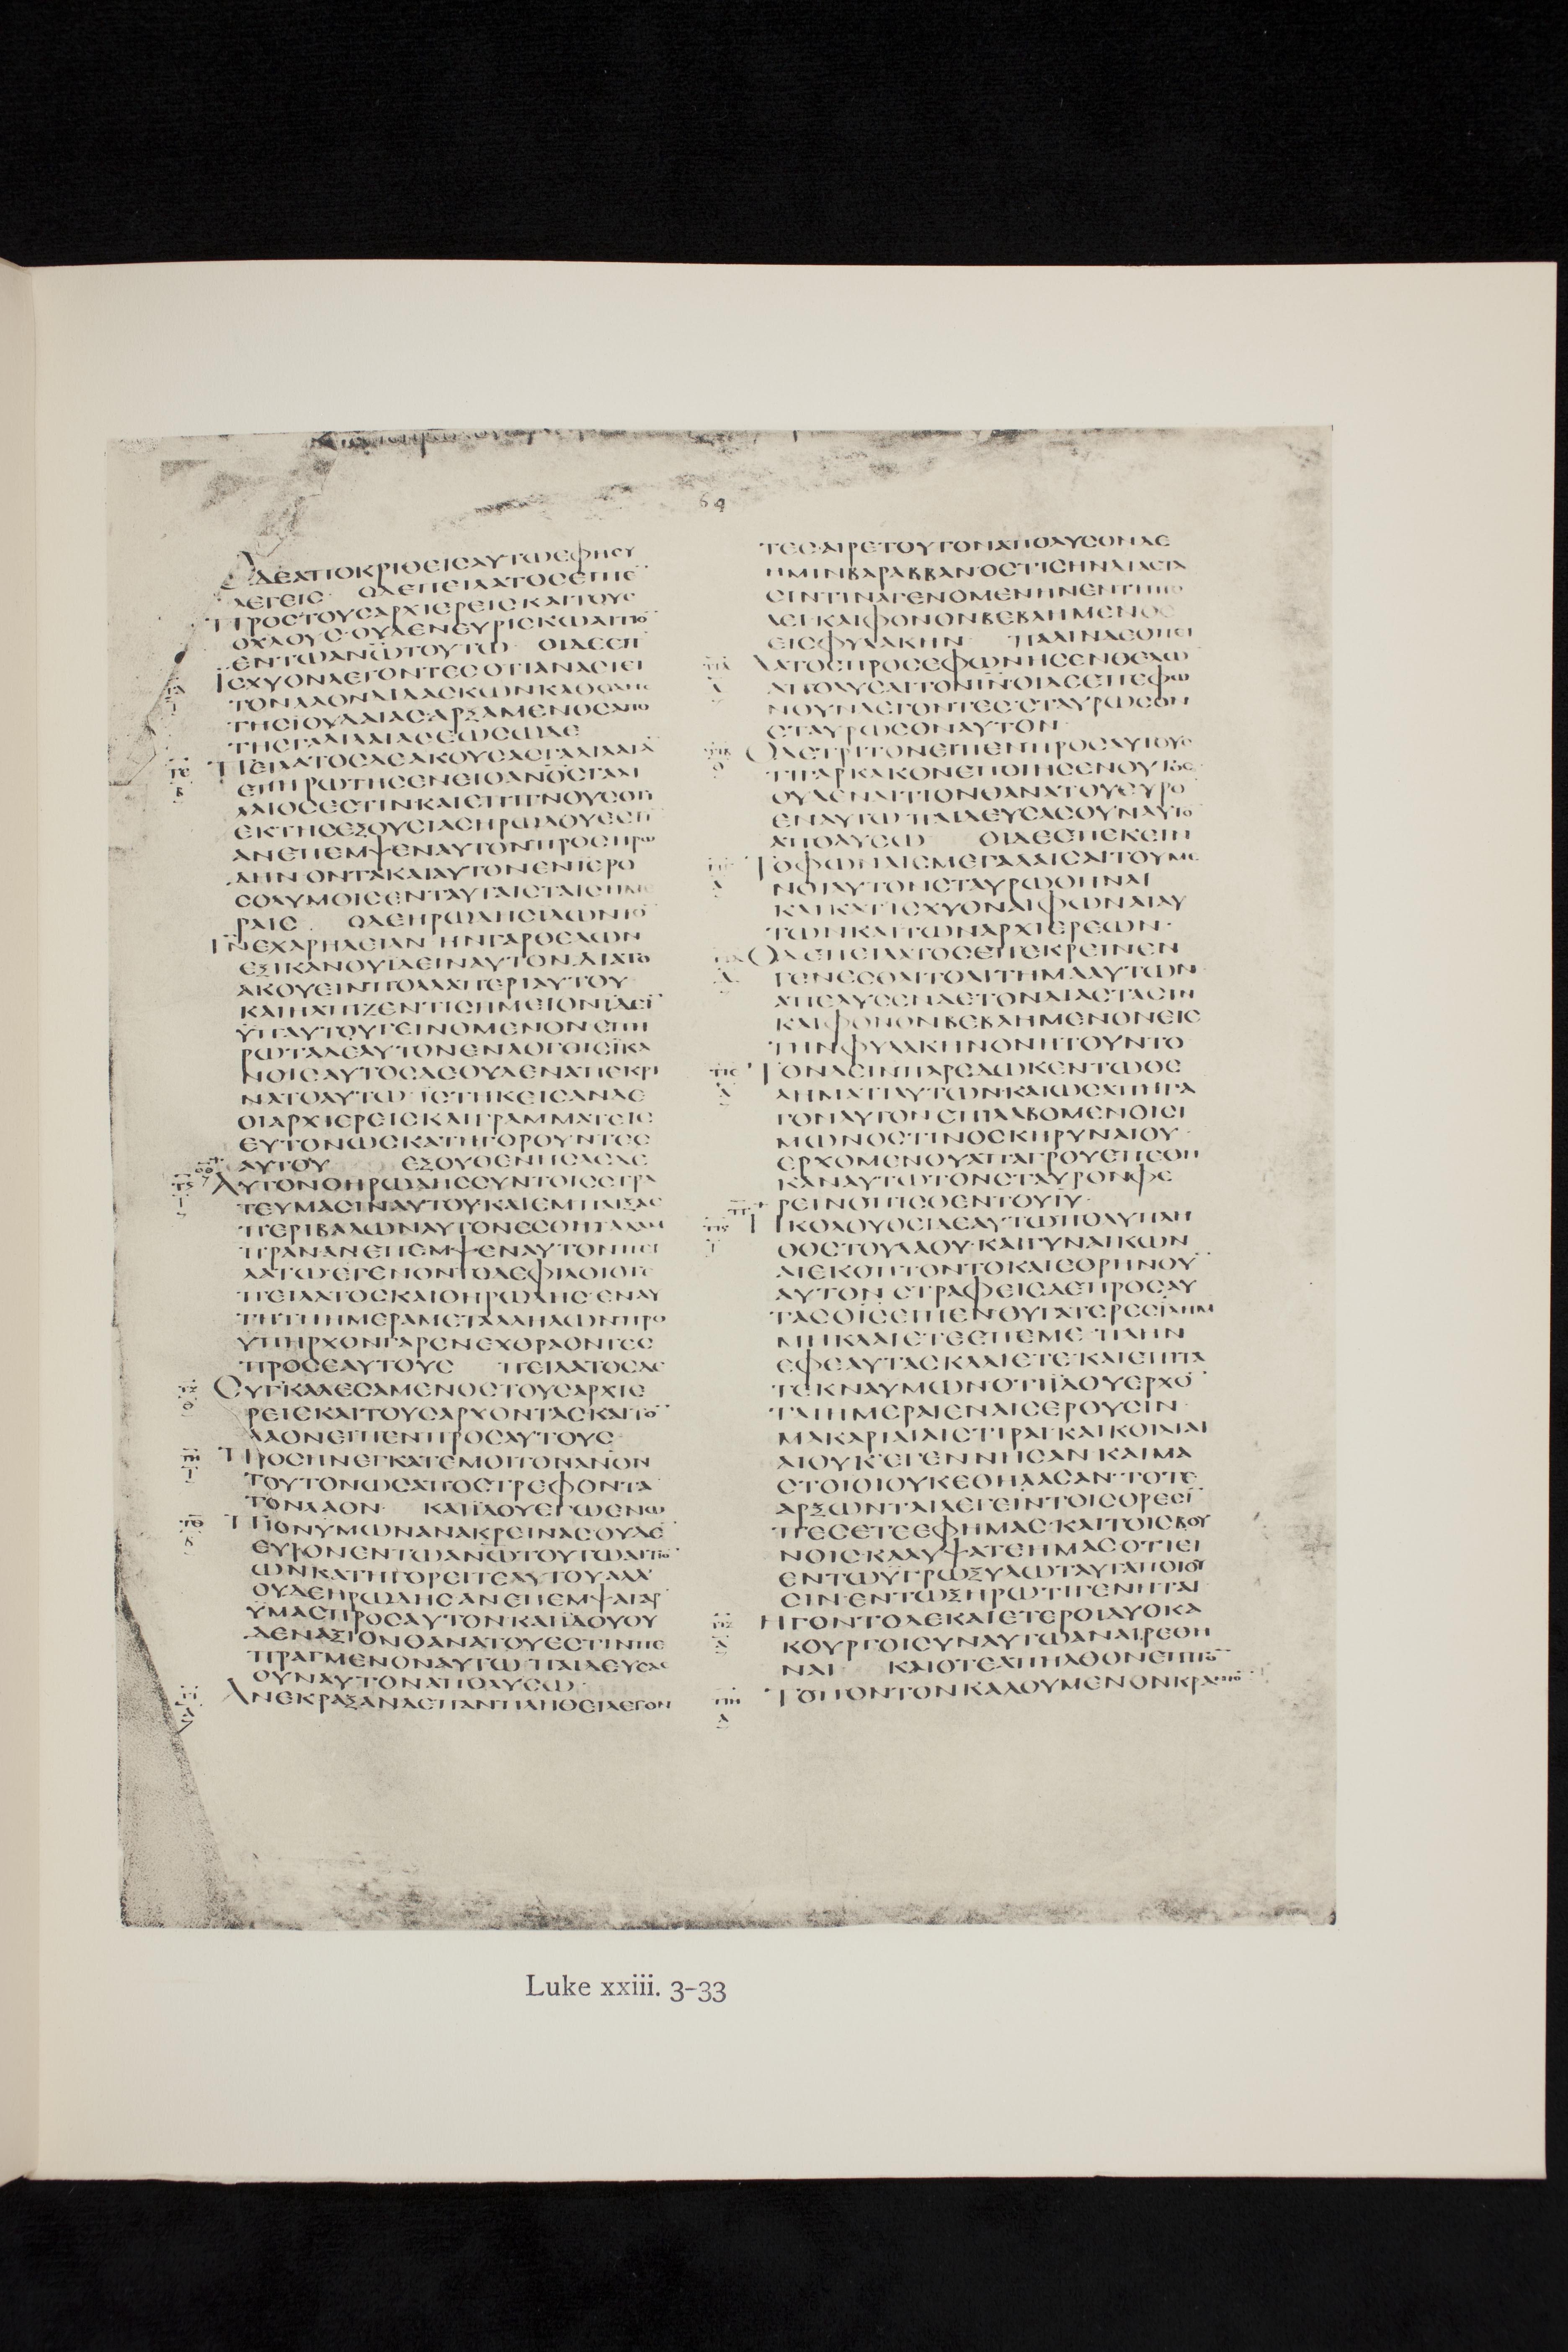 ΔΕΑΠΟΚΡΙΘΕΙϹΑΥΤΩΕΦΗϹΥ
ΛΕΓΕΙϹ· ΟΔΕΠΕΙΛΑΤΟϹΕΙΠΕ̅
ΠΡΟϹΤΟΥϹΑΡΧΙΕΡΕΙϹΚΑΙΤΟΥϹ
ΟΧΛΟΥϹ·ΟΥΔΕΝΕΥΡΙϹΚΩΑΙΤΙΟ̅
ΕΝΤΩΑΝΩ̅ΤΟΥΤΩ· ΟΙΔΕΕΠ
ΙϹΧΥΟΝΛΕΓΟΝΤΕϹΟΤΙΑΝΑϹΙΕΙ
ΤΟΝΛΑΟΝΔΙΔΑϹΚΩΝΚΑΘΟΛΗϹ
ΤΗϹΙΟΥΔΑΙΑϹΑΡΞΑΜΕΝΟϹΑΠΟ
ΤΗϹΓΑΛΙΛΑΙΑϹΕΩϹΩΔΕ
ΠΕΙΛΑΤΟϹΔΕΑΚΟΥϹΑϹΓΑΛΙΛΑΙΑ̅
ΕΠΗΡΩΤΗϹΕΝΕΙΟΑΝΟ̅ϹΓΑΛΙ
ΛΑΙΟϹΕϹΤΙΝΚΑΙΕΠΙΓΝΟΥϹΟΤΙ
ΕΚΤΗϹΕΞΟΥϹΙΑϹΗΡΩΔΟΥΕϹΤΙ
ΑΝΕΠΕΜΨΕΝΑΥΤΟΝΠΡΟϹΗΡΩ
ΔΗΝΟΝΤΑΚΑΙΑΥΤΟΝΕΝΙΕΡΟ
ϹΟΛΥΜΟΙϹΕΝΤΑΥΤΑΙϹΤΑΙϹΗΜΕ
ΡΑΙϹ· ΟΔΕΗΡΩΔΗϹΙΔΩΝΤΟ̅
ΙΝ̅ΕΧΑΡΗΛΕΙΑΝ·ΗΝΓΑΡΘΕΛΩΝ
ΕΞΙΚΑΝΟΥΙΔΕΙΝΑΥΤΟΝΔΙΑΤΟ
ΑΚΟΥΕΙΝΠΟΛΛΑΠΕΡΙΑΥΤΟΥ·
ΚΑΙΗΛΠΙΖΕΝΤΙϹΗΜΕΙΟΝΙΔΕΙ̅
ΥΠΑΥΤΟΥΓΕΙΝΟΜΕΝΟΝΕΠΗ
ΡΩΤΑΔΕΑΥΤΟΝΕΝΛΟΓΟΙϹΙΚΑ
ΝΟΙϹΑΥΤΟϹΔΕΟΥΔΕΝΑΠΕΚΡΙ
ΝΑΤΟΑΥΤΩ·ΙϹΤΗΚΕΙϹΑΝΔΕ
ΟΙΑΡΧΙΕΡΕΙϹΚΑΙΓΡΑΜΜΑΤΕΙϹ
ΕΥΤΟΝΩϹΚΑΤΗΓΟΡΟΥΝΤΕϹ
ΑΥΤΟΥ· ΕΞΟΥΘΕΝΗϹΑϹΔΕ
ΑΥΤΟΝΟΗΡΩΔΗϹϹΥΝΤΟΙϹϹΤΡΑ
ΤΕΥΜΑϹΙΝΑΥΤΟΥ·ΚΑΙΕΜΠΑΙΞΑϹ
ΠΕΡΙΒΑΛΩΝΑΥΤΟΝΕϹΘΗΤΑΛΑΜ
ΠΡΑΝΑΝΕΠΕΜΨΕΝΑΥΤΟΝΠΕΙ
ΛΑΤΩ·ΕΓΕΝΟΝΤΟΔΕΦΙΛΟΙΟΤΕ
ΠΕΙΛΑΤΟϹΚΑΙΟΗΡΩΔΗϹ·ΕΝΑΥ
ΤΗΤΗΗΜΕΡΑΜΕΤΑΛΛΗΛΩΝΠΡΟ
ΥΠΗΡΧΟΝΓΑΡΕΝΕΧΘΡΑΟΝΤΕϹ
ΠΡΟϹΕΑΥΤΟΥϹ ΠΕΙΛΑΤΟϹΔΕ
ϹΥΓΚΑΛΕϹΑΜΕΝΟϹΤΟΥϹΑΡΧΙΕ
ΡΕΙϹΚΑΙΤΟΥϹΑΡΧΟΝΤΑϹΚΑΙΤΟ̅
ΛΑΟΝΕΙΠΕΝΠΡΟϹΑΥΤΟΥϹ·
ΠΡΟϹΗΝΕΓΚΑΤΕΜΟΙΤΟΝΑΝΟ̅Ν
ΤΟΥΤΟΝΩϹΑΠΟϹΤΡΕΦΟΝΤΑ
ΤΟΝΛΑΟΝ· ΚΑΙΙΔΟΥΕΓΩΕΝΩ
ΠΙΟΝΥΜΩΝΑΝΑΚΡΕΙΝΑϹΟΥΔΕ
ΕΥΡΟΝΕΝΤΩΑΝΩ̅ΤΟΥΤΩΑΙΤΙΟ̅
ΩΝΚΑΤΗΓΟΡΕΙΤΕΑΥΤΟΥΑΛΛ
ΟΥΔΕΗΡΩΔΗϹΑΝΕΠΕΜΨΑΓΑΡ
ΥΜΑϹΠΡΟϹΑΥΤΟΝΚΑΙΙΔΟΥΟΥ
ΔΕΝΑΞΙΟΝΘΑΝΑΤΟΥΕϹΤΙΝΠΕ
ΠΡΑΓΜΕΝΟΝΑΥΤΩ·ΠΑΙΔΕΥϹΑϹ
ΟΥΝΑΥΤΟΝΑΠΟΛΥϹΩ
ΑΝΕΚΡΑΞΑΝΔΕΠΑΝΠΛΗΘΕΙΛΕΓΟΝ
69
ΤΕϹ·ΑΙΡΕΤΟΥΤΟΝΑΠΟΛΥϹΟΝΔΕ
ΗΜΙΝΒΑΡΑΒΒΑΝ·ΟϹΤΙϹΗΝΔΙΑϹΤΑ
ϹΙΝΤΙΝΑΓΕΝΟΜΕΝΗΝΕΝΤΗΠΟ
ΛΕΙ·ΚΑΙΦΟΝΟΝΒΕΒΛΗΜΕΝΟϹ
ΕΙϹΦΥΛΑΚΗΝ ΠΑΛΙΝΔΕΟΠΕΙ
ΛΑΤΟϹΠΡΟϹΕΦΩΝΗϹΕΝΘΕΛΩ
ΑΠΟΛΥϹΑΙΤΟΝΙΝ̅·ΟΙΔΕΕΠΕΦΩ
ΝΟΥΝΛΕΓΟΝΤΕϹ·ϹΤΑΥΡΩϹΟΝ
ϹΤΑΥΡΩϹΟΝΑΥΤΟΝ·
ΟΔΕΤΡΙΤΟΝΕΙΠΕΝΠΡΟϹΑΥΤΟΥϹ
ΤΙΓΑΡΚΑΚΟΝΕΠΟΙΗϹΕΝΟΥΤΟϹ
ΟΥΔΕΝΑΙΤΙΟΝΘΑΝΑΤΟΥΕΥΡΟ̅
ΕΝΑΥΤΩ·ΠΑΙΔΕΥϹΑϹΟΥΝΑΥΤΟ̅
ΑΠΟΛΥϹΩ ΟΙΔΕΕΠΕΚΕΙΝ
ΤΟΦΩΝΑΙϹΜΕΓΑΛΑΙϹΑΙΤΟΥΜΕ
ΝΟΙΑΥΤΟΝϹΤΑΥΡΩΘΗΝΑΙ
ΚΑΙΚΑΤΙϹΧΥΟΝΑΙΦΩΝΑΙΑΥ
ΤΩΝΚΑΙΤΩΝΑΡΧΙΕΡΕΩΝ·
ΟΔΕΠΕΙΛΑΤΟϹΕΠΕΚΡΕΙΝΕΝ
ΓΕΝΕϹΘΑΙΤΟΑΙΤΗΜΑΑΥΤΩΝ
ΑΠΕΛΥϹΕΝΔΕΤΟΝΔΙΑϹΤΑϹΙΝ
ΚΑΙΦΟΝΟΝΒΕΒΛΗΜΕΝΟΝΕΙϹ
ΤΗΝΦΥΛΑΚΗΝΟΝΗΤΟΥΝΤΟ
ΤΟΝΔΕΙΝ̅ΠΑΡΕΔΩΚΕΝΤΩΘΕ
ΛΗΜΑΤΙΑΥΤΩΝ·ΚΑΙΩϹΑΠΗΓΑ
ΓΟΝΑΥΤΟΝΕΠΙΛΑΒΟΜΕΝΟΙϹΙ
ΜΩΝΟϹΤΙΝΟϹΚΗΡΥΝΑΙΟΥ·
ΕΡΧΟΜΕΝΟΥΑΠΑΓΡΟΥΕΠΕΘΗ
ΚΑΝΑΥΤΩΤΟΝϹΤΑΥΡΟΝΦΕ
ΡΕΙΝΟΠΙϹΘΕΝΤΟΥΙΥ̅·
ΗΚΟΛΟΥΘΕΙΔΕΑΥΤΩΠΟΛΥΠΛΗ
ΘΟϹΤΟΥΛΑΟΥ·ΚΑΙΓΥΝΑΙΚΩΝ
ΑΙΕΚΟΠΤΟΝΤΟΚΑΙΕΘΡΗΝΟΥ̅
ΑΥΤΟΝ·ϹΤΡΑΦΕΙϹΔΕΠΡΟϹΑΥ
ΤΑϹΟΙϹ̅ΕΙΠΕΝΘΥΓΑΤΕΡΕϹΙΛΗΜ
ΜΗΚΛΑΙΕΤΕΕΠΕΜΕ·ΠΛΗΝ
ΕΦΕΑΥΤΑϹΚΛΑΙΕΤΕ·ΚΑΙΕΠΙΤΑ
ΤΕΚΝΑΥΜΩΝΟΤΙΙΔΟΥΕΡΧΟ̅
ΤΑΙΗΜΕΡΑΙΕΝΑΙϹΕΡΟΥϹΙΝ·
ΜΑΚΑΡΙΑΙΑΙϹΤΙΡΑΙ·ΚΑΙΚΟΙΛΙΑΙ
ΑΙΟΥΚΕΓΕΝΝΗϹΑΝ·ΚΑΙΜΑ
ϹΤΟΙΟΙΟΥΚΕΘΗΛΑϹΑΝ·ΤΟΤΕ
ΑΡΞΩΝΤΑΙΛΕΓΕΙΝΤΟΙϹΟΡΕϹΙ̅
ΠΕϹΕΤΕΕΦΗΜΑϹ·ΚΑΙΤΟΙϹΒΟΥ
ΝΟΙϹ·ΚΑΛΥΨΑΤΕΗΜΑϹΟΤΙΕΙ
ΕΝΤΩΥΓΡΩΞΥΛΩΤΑΥΤΑΠΟΙΟΥ
ϹΙΝ·ΕΝΤΩΞΗΡΩΤΙΓΕΝΗΤΑΙ·
ΗΓΟΝΤΟΔΕΚΑΙΕΤΕΡΟΙΔΥΟΚΑ
ΚΟΥΡΓΟΙϹΥΝΑΥΤΩΑΝΑΙΡΕΘΗ
ΝΑΙ ΚΑΙΟΤΕΑΠΗΛΘΟΝΕΠΙΤΟ̅
ΤΟΠΟΝΤΟΝΚΑΛΟΥΜΕΝΟΝΚΡΑΝΙΟ̅
Luke xxiii. 3-33